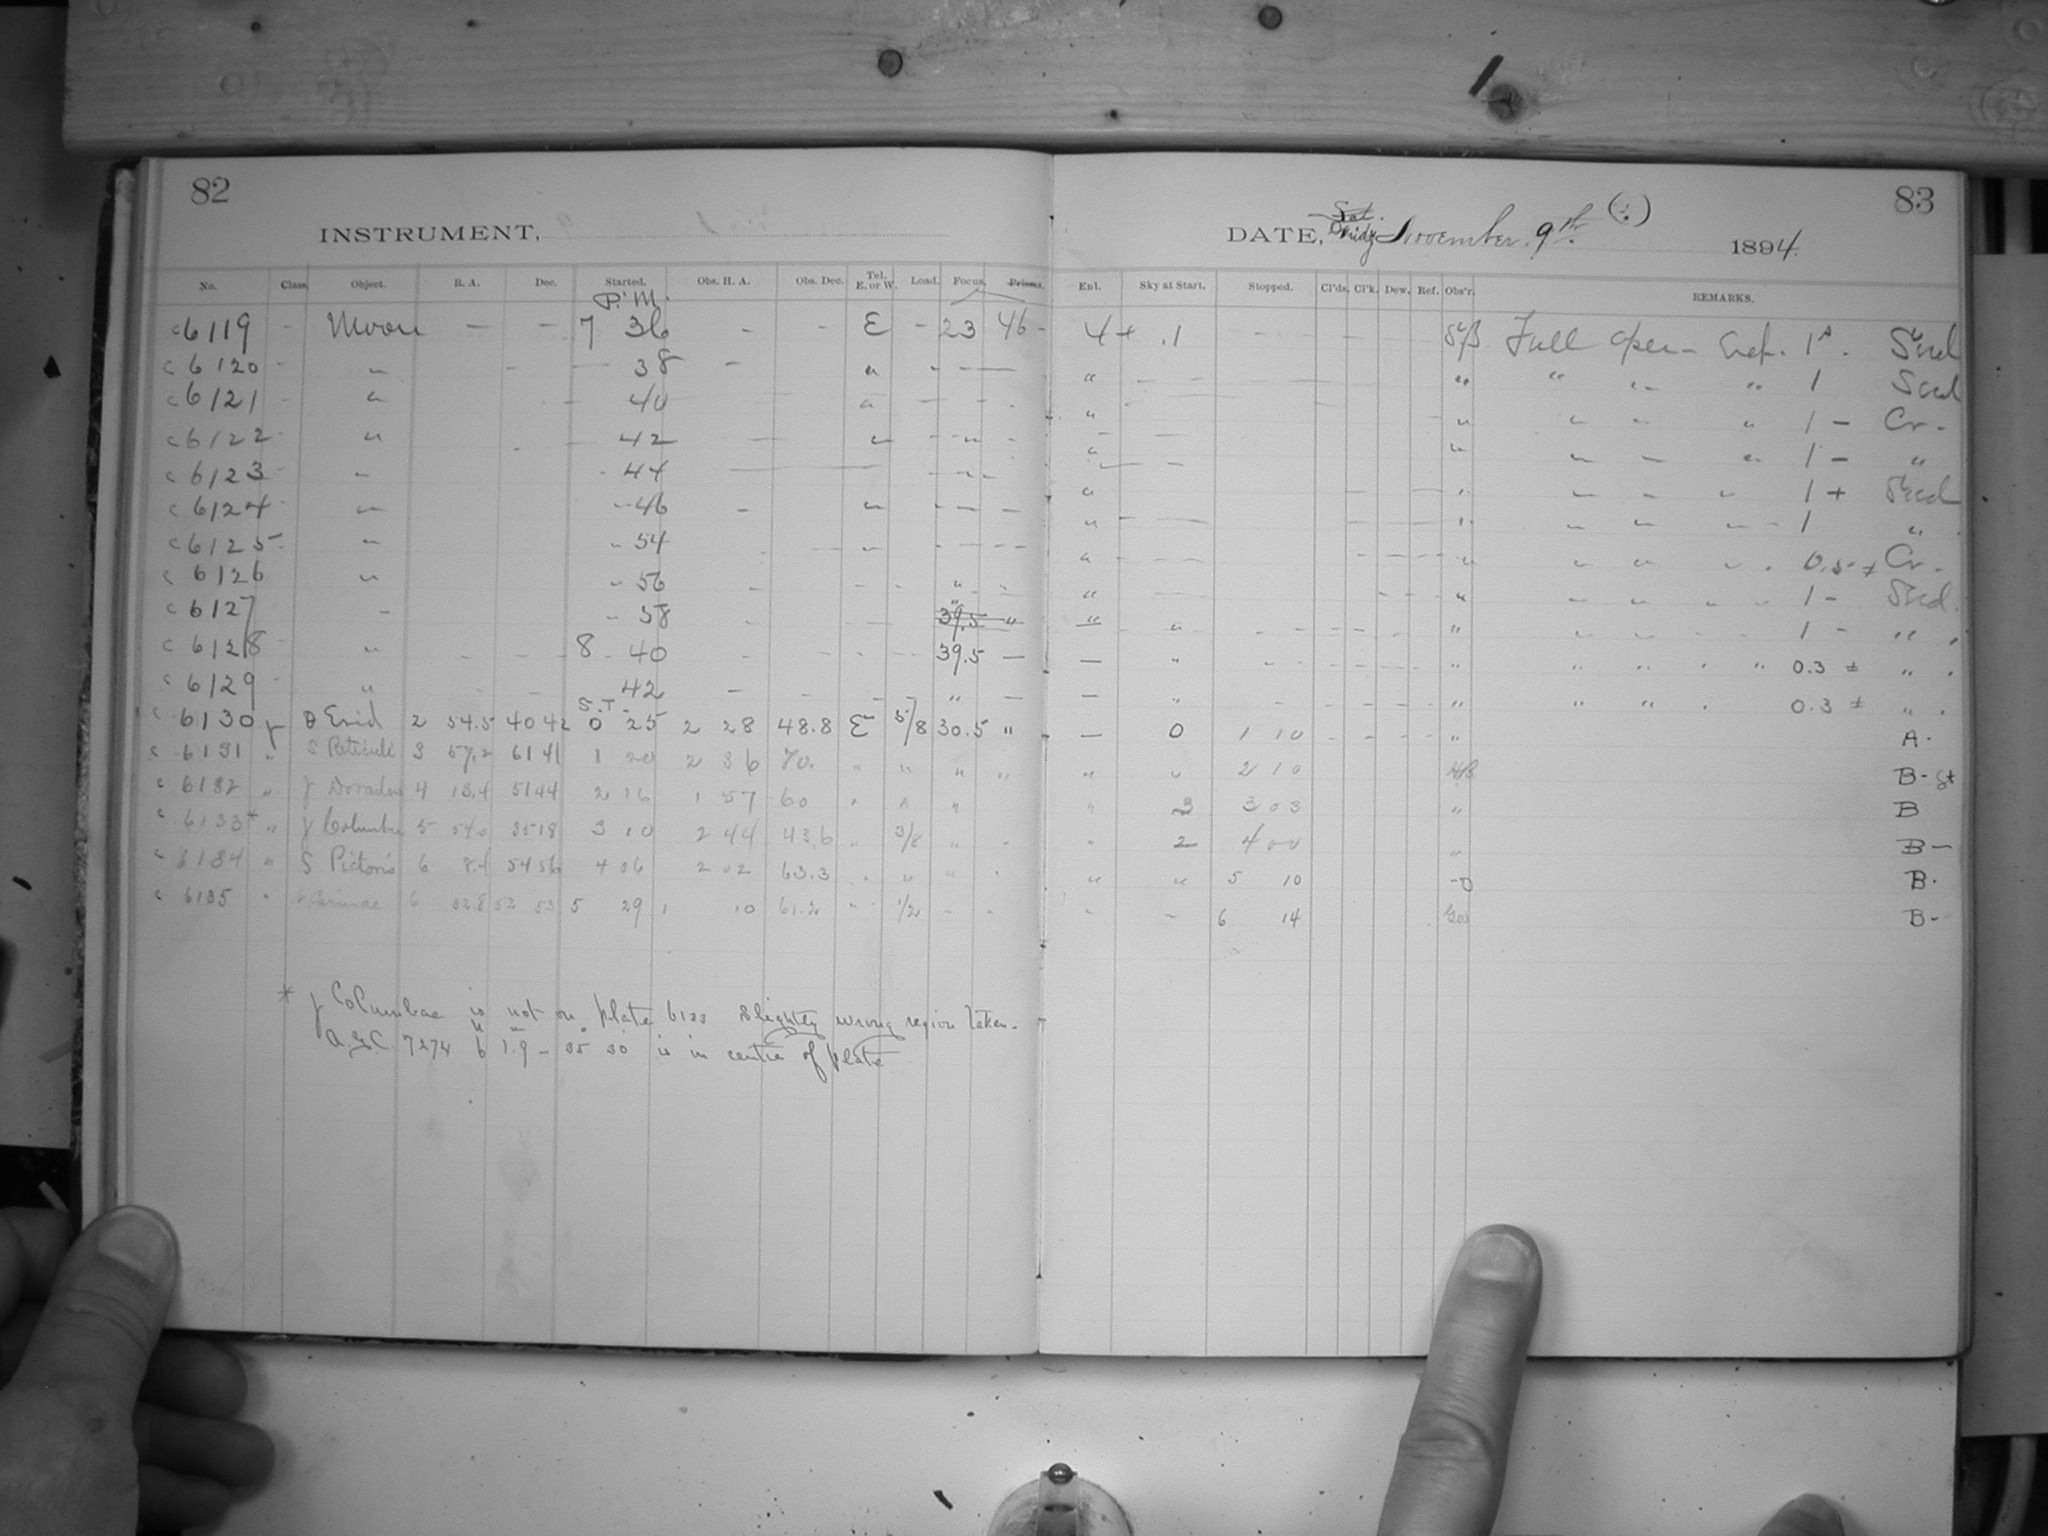 82
INSTRUMENT,
No. Class. Object. R. A. Dec. Started. Obs. H. A. Obs. Dec. Tel. E. or W. Load. Focus. Prisms.
P. M.
c 6119 - Moon - - 7 36 - - E - 23 46 -
c 6120 - " - - 38 - " - -
c 6121 " - 40 "
c 6122 - " - 42 - " - " -
c 6123 - " - 44 - - "
c 6124 - " - 46 - " - - -
c 6125 - " - 54 - " - - -
c 6126 " - 56 - - - "
c 6127 - - 58 - 39.5 "
c 6128 - " - - 8 40 - - 39.5 -
c 6129 " - - 42 - - - " -
S. T.
c 6130 γ θ Erid 2 54.5 40 42 0 25 2 28 48.8 E 5/8 30.5 "
c 6131 " δ Reticuli 3 57.2 61 41 1 20 2 36 70. " " " "
c 6132 " γ Doradus 4 13.4 51 44 2 16 1 57 60 " " "
c 6133* " γ Columbae 5 54.0 35 18 3 10 2 44 43.6 " 3/8 "
c 6134 " δ Pictoris 6 8.4 54 56 4 06 2 02 63.3 " " "
c 6135 " Carinae 6 52 53 5 29 1 10 61.2 " 1/2 - -
* γ Columbae is not on plate 6133 slightly wrong region taken.
A.G.C. 7274 6h 1.9m - 35° 30' is in centre of plate
83
DATE, Sat. Friday November 9th (?) 1894.
Enl. Sky at Start. Stopped. Cl'ds. Cl'k. Dew. Ref. Obs'r. REMARKS.
4+ .1 - Full open - 1s.
" - - " " " " 1
" - - " " " " 1 - Cr.
" - - " " " " 1 - "
" - - " " " " 1 +
" - - " " " " 1 "
" - - " " " " 0.5 ± Cr.
" - - " " " " 1 -
" " - - " " " " 1 - " .
- " - - " " " " 0.3 ± " .
- " - - " " " " 0.3 ± " .
- 0 1 10 - - " A.
" " 2 10 B -
" 3 3 03 " B
" 2 4 00 " B -
" " 5 10 B.
" - 6 14 B -